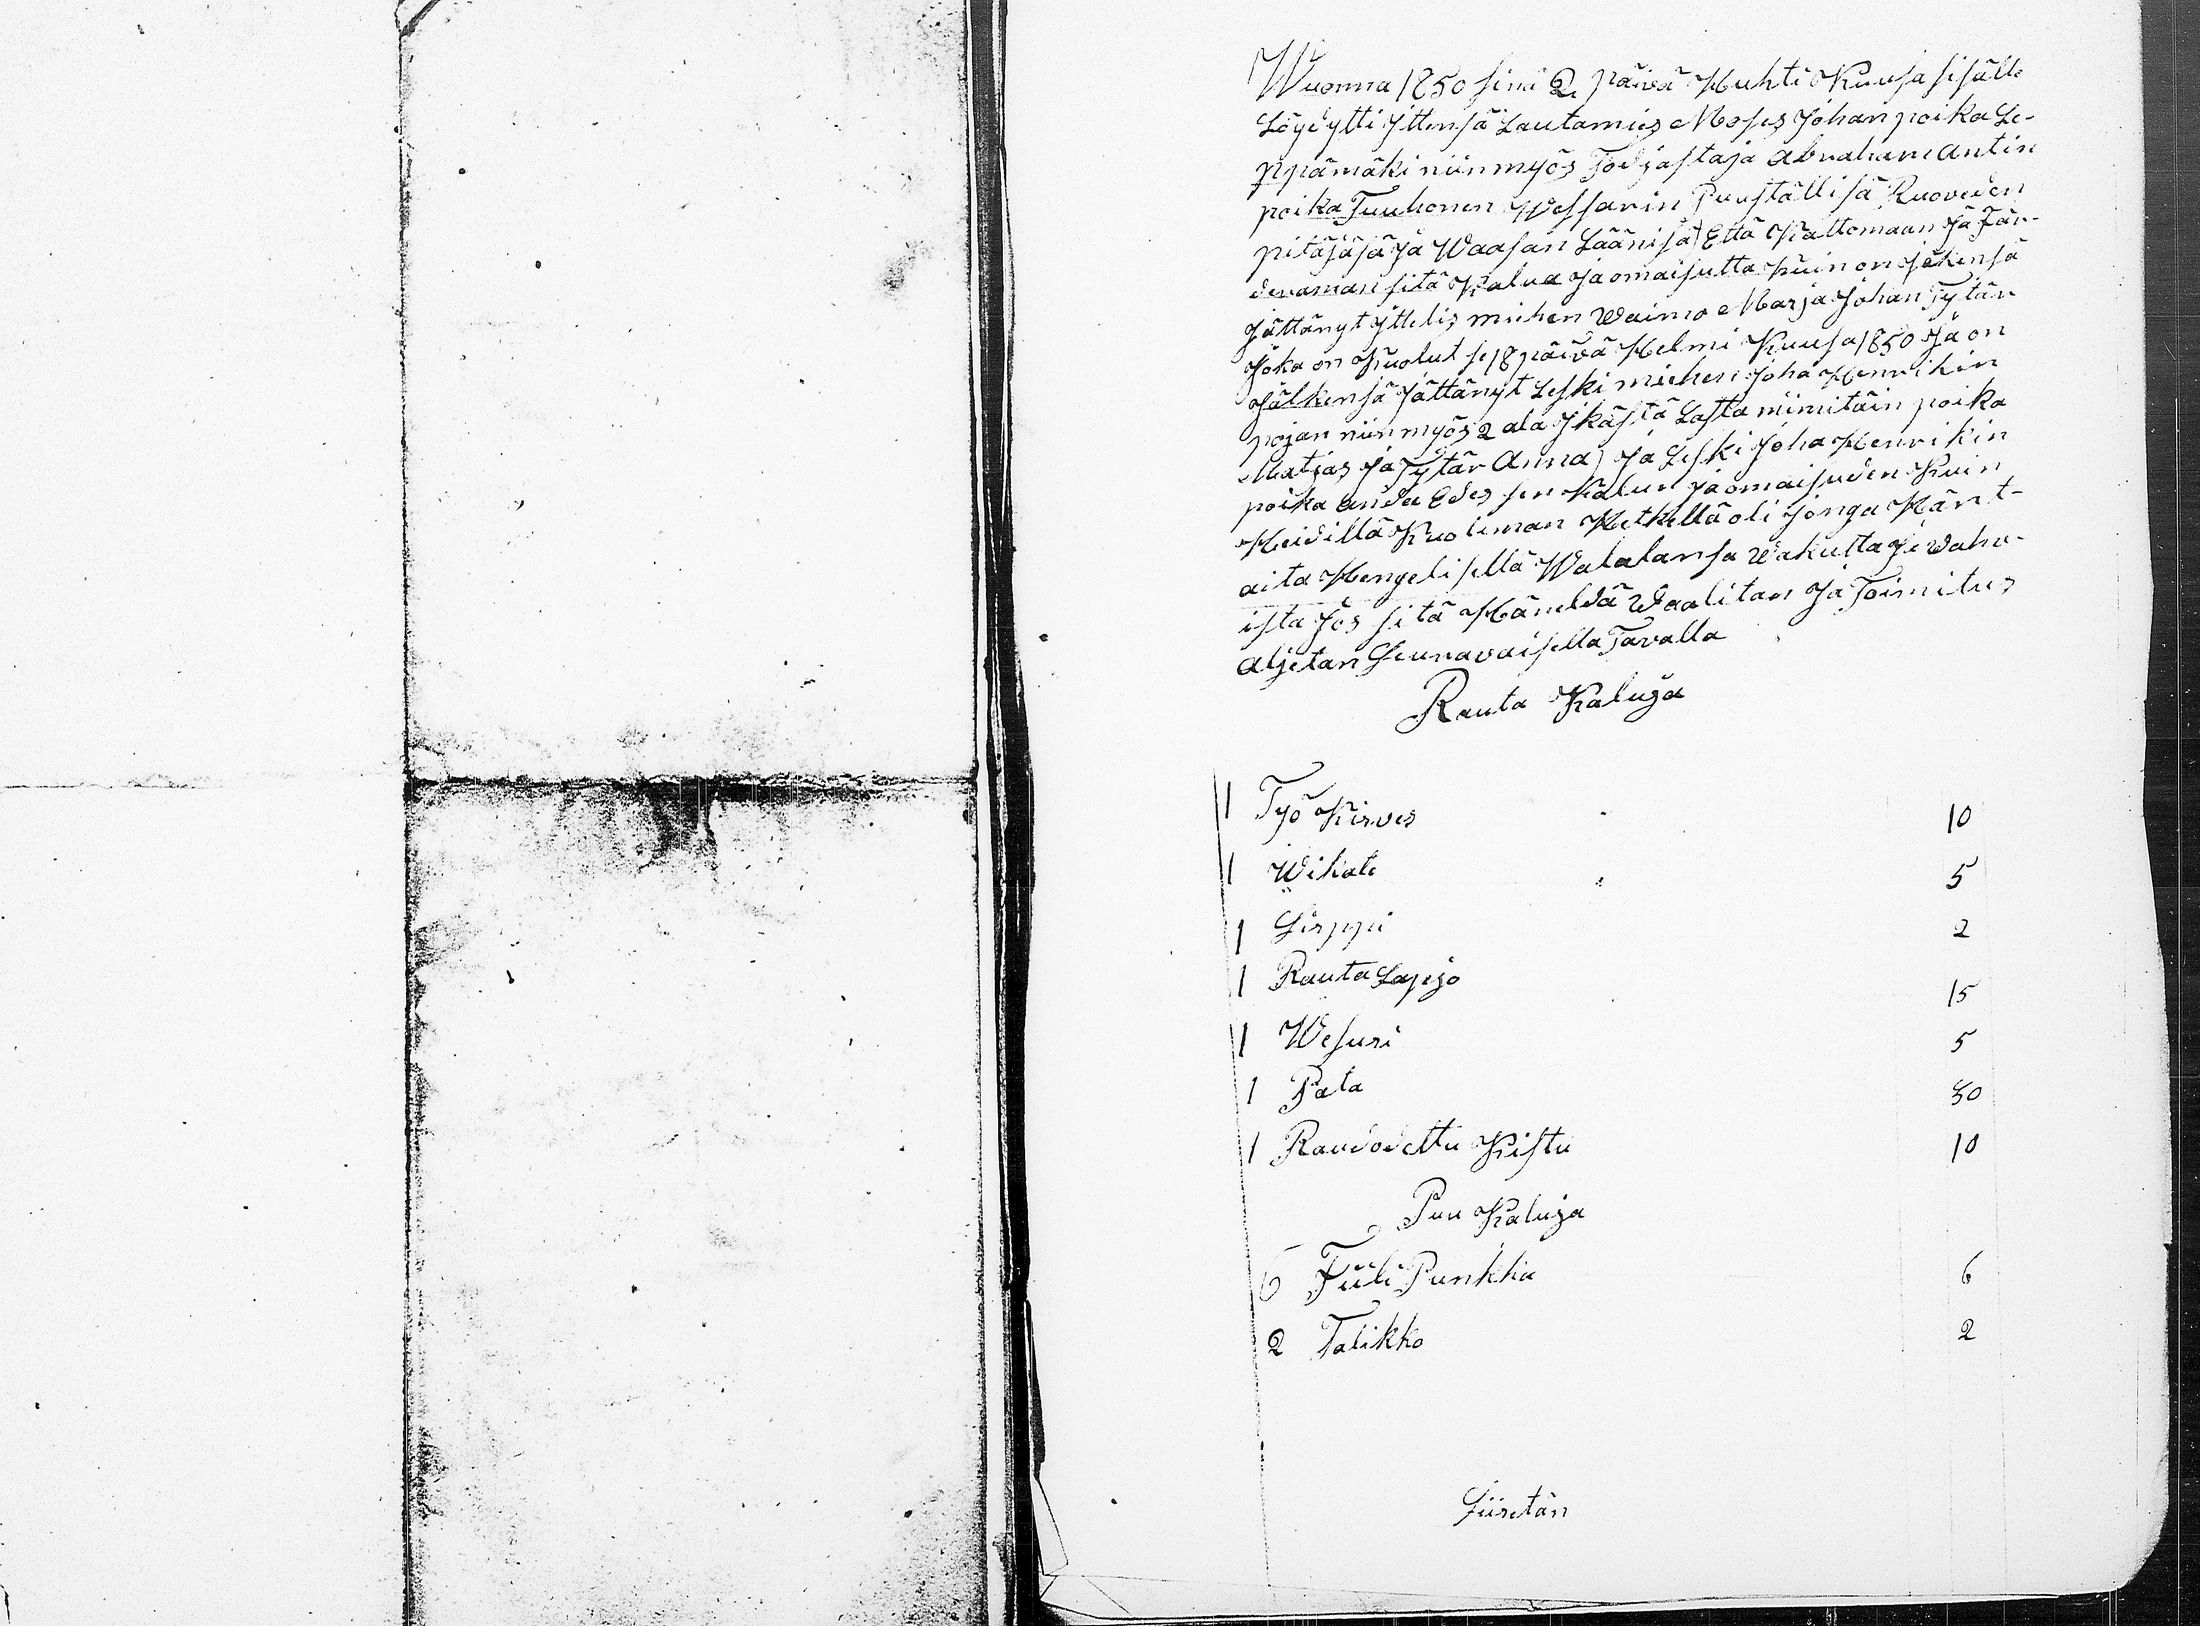 Wuonna 1850 sinä 2 päivä Huhti Kuusa sisälle
Löydytti Jttensä Lautamies Moses Johan poika Le-
ppämäki niin myös Todjastaja Abraham Antin
poika Tuuhonen Wessarin Puuställisä Ruoveden
pitäjäsä Ja Waasan Läänisä) Että Kattomaan Ja Tär-
devaman sitä Kalua Ja omaisutta Kuin on Jäkensä
Jättänyt Jttelis miehen Waimo Marja Johan Tytär
Joka on Kuolut se 18 päivä Helmi Kuusa 1850 Ja on
Jälkensä Jättänyt Leski miehen Joha Henrikin
pojan niin myös 2 ala Jkästä Lasta nimitäin poika
Matjas Ja Tytär Anna) Ja Leski Joha Henrikin
poika anda Edes sen Kalun Ja omaisuden Kuin
Heidillä Kuoleman Hetkellä oli Jonga Hän t-
aita Hengelisellä Walalansa Wakutta Je Waha-
ista Jos sitä Häneldä Waalitan Ja Toimitus
Aljetan Seuravaisella Tavalla
Rauta Kaluja
1 Työ Kirves 10
1 Wikate 5
1 Sirppi 2
1 Rauta Lapijo 15
1 Wesuri 5
1 Pata 50
1 Raudodettu Kistu 10
Puu Kaluja
6 Fiili Punkka 6
2 Talikko 2
Siiretän